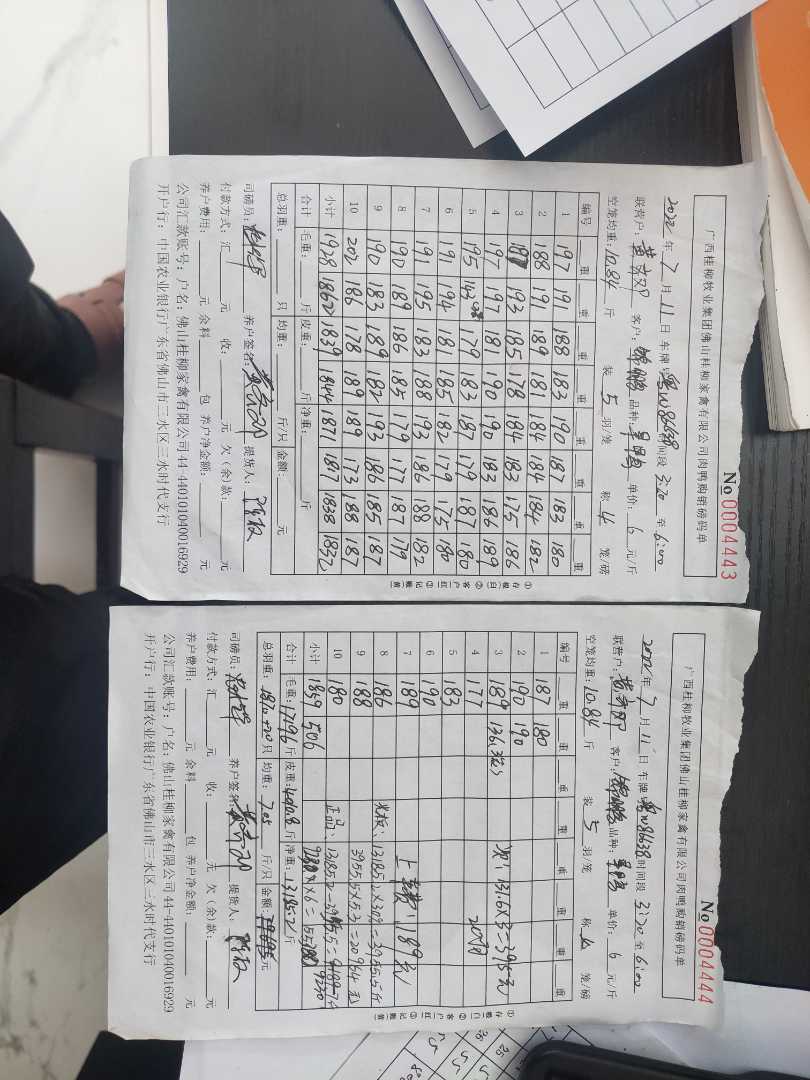 广西桂柳牧业集团佛山桂柳家禽有限公司肉鸭购销磅码单
No 0004443
2022年7月11日 车牌号 粤W86638 时间段 3:20 至 6:00
联营户: 客户: 品种: 单价: 6 元/斤
空笼均重: 10.84 斤 装 5 羽/笼 称 4 笼/磅
编号 重 重 重 重 重 重 重 重
1 197 191 188 183 190 187 183 180
2 188 191 189 181 184 184 184 182
3 193 185 178 184 183 175 186
4 197 197 181 190 190 183 186 189
5 195 179 183 187 179 187 180
6 191 194 181 185 182 179 175 180
7 191 195 183 188 193 186 188 182
8 190 189 186 185 179 177 187 179
9 190 183 189 182 193 186 185 187
10 202 186 178 189 189 173 188 187
小计 1928 1862 1839 1844 1871 1817 1838 1832
合计: 毛重: 斤 皮重: 斤 净重: 斤
总羽重: 只 均重: 斤/只 金额: 元
司磅员: 养户签名: 提货人:
付款方式: 汇 元 收: 元 欠(余)款: 元
养户费用: 元 余料 包 养户净金额: 元
公司汇款账号: 户名: 佛山桂柳家禽有限公司44-440101040016929
开户行: 中国农业银行广东省佛山市三水区三水时代支行
①存根(白) ②客户(红) ③记账(黄)
广西桂柳牧业集团佛山桂柳家禽有限公司肉鸭购销磅码单
No 0004444
2022年7月11日 车牌号 粤W86638 时间段 3:20 至 6:00
联营户: 客户: 品种: 单价: 6 元/斤
空笼均重: 10.84 斤 装 5 羽/笼 称 4 笼/磅
编号 重 重 重 重 重 重 重 重
1 187 180
2 190 190
3 189 136(3笼) 131.6×3=395元
4 177 20只
5 183
6 190
7 189 1189元
8 186 13185.2×30%=3955.5斤
9 188 3955.5×5.3=20964元
10 180 正品: 13185.2-3955.5=
小计 1859 506
合计: 毛重: 17196 斤 皮重: 斤 净重: 13185.2 斤
总羽重: 只 均重: 7.05 斤/只 金额 元
司磅员: 养户签名: 提货人:
付款方式: 汇 元 收: 元 欠(余)款: 元
养户费用: 元 余料 包 养户净金额: 元
公司汇款账号: 户名: 佛山桂柳家禽有限公司44-440101040016929
开户行: 中国农业银行广东省佛山市三水区三水时代支行
①存根(白) ②客户(红) ③记账(黄)